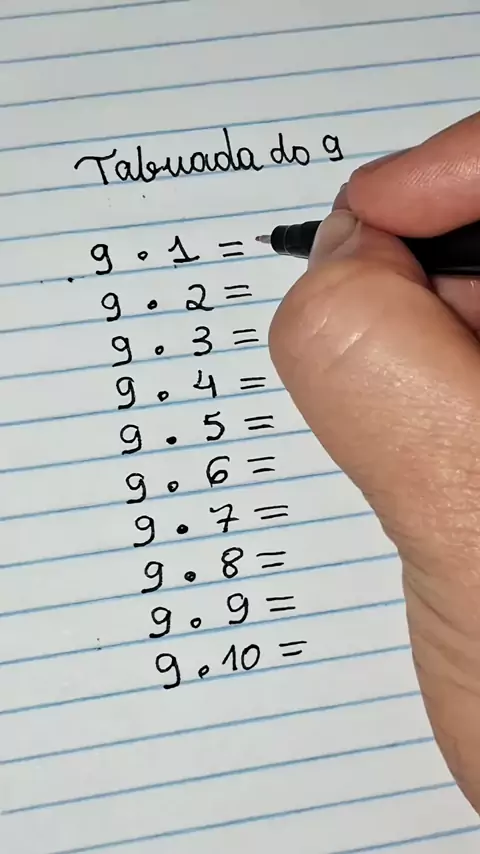 Tabuada do 9
9 . 1 =
9 . 2 =
9 . 3 =
9 . 4 =
9 . 5 =
9 . 6 =
9 . 7 =
9 . 8 =
9 . 9 =
9 . 10 =